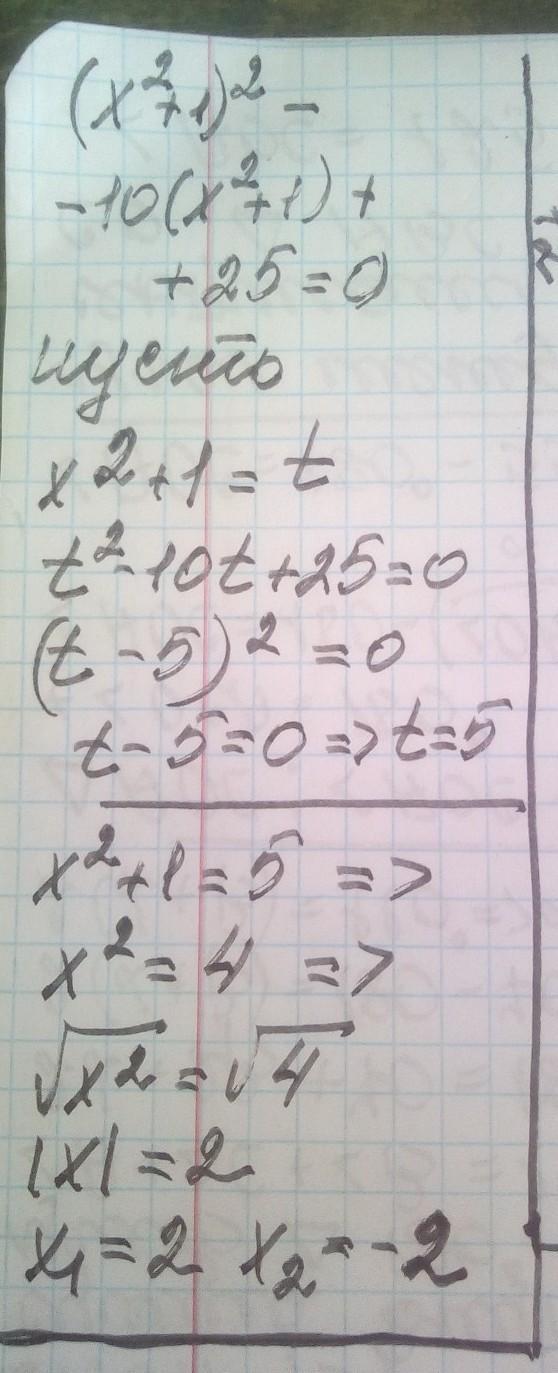 (x²+1)² −
−10(x²+1)+
+25=0
пусть
x²+1=t
t²-10t+25=0
(t-5)²=0
t-5=0=>t=5
x²+1=5 =>
x²=4 =>
√x²=√4
|x|=2
x₁=2 x₂=-2